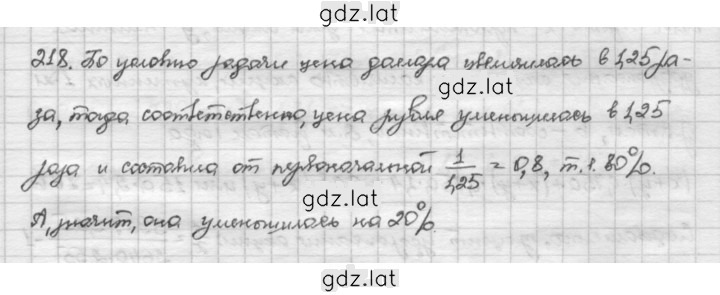 gdz.lat
218. По условию задачи цена доллара увеличилась в 1,25 ра-
gdz.lat
за, тогда соответственно, цена рубля уменьшилась в 1,25
раза и составила от первоначальной 1/1,25 = 0,8, т.е. 80%.
gdz.lat
А, значит, она уменьшилась на 20%.
gdz.lat